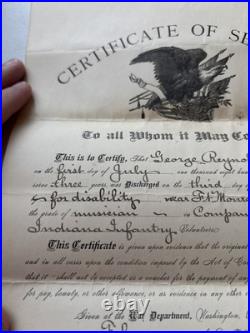 CERTIFICATE OF SE
To all Whom it May Co
This is to Certify, That George Reyno
on the first day of July one thousand eight hun
three years, was Discharged on the third day
for disability near Ft Monro
the grade of musician in Compan
Indiana Infantry Volunteers
This Certificate is given upon evidence that the origina
and in all cases upon the condition imposed by the Act of Con
that it "shall not be accepted as a voucher for the payment of any
for pay, bounty, or other allowance, or as evidence in any other
Given at the War Department, Washington,